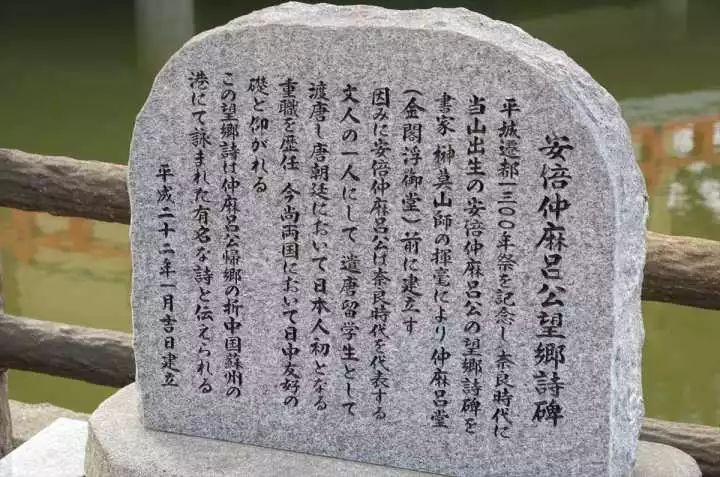 安倍仲麻呂公望郷詩碑
平城遷都一三〇〇年祭を記念し奈良時代に
当山出生の安倍仲麻呂公の望郷詩碑を
書家 榊莫山師の揮毫により仲麻呂堂
(金閣浮御堂)前に建立す
因みに安倍仲麻呂公は奈良時代を代表する
文人の一人にして 遣唐留学生として
渡唐し唐朝廷において日本人初となる
重職を歴任 今尚両国において日中友好の
礎と仰がれる
この望郷詩は仲麻呂公帰郷の折中国蘇州の
港にて詠まれた有名な詩と伝えられる
平成二十二年一月吉日建立